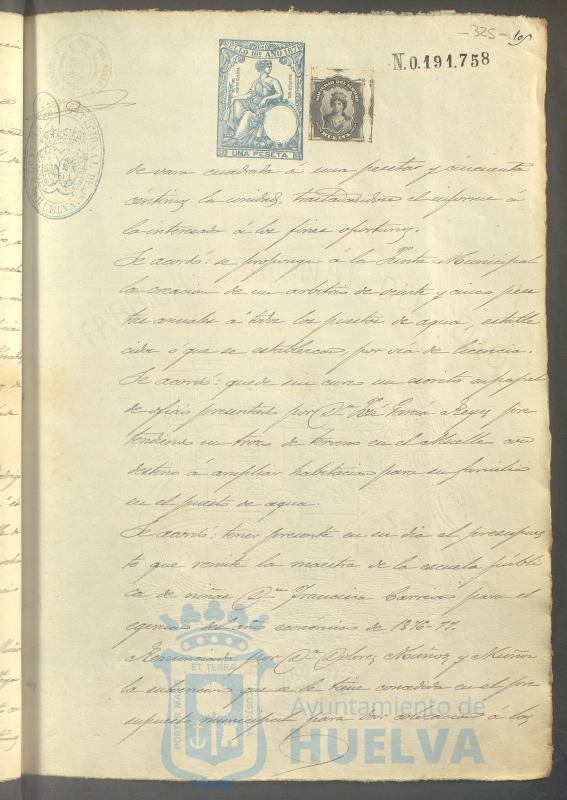 -325- 105
SELLO 10º AÑO 1876
UNA PESETA
HUELVA
N.0.191.758
de vara cuadrada á una peseta y cincuenta
céntimos la unidad, trasladandose el informe á
la interesada á los fines oportunos.
Se acordó: se proponga á la Junta Municipal
la creacion de un arbitrio de veinte y cinco pese
tas anuales á todos los puestos de agua, estable
cidos ó que se establezcan, por vía de licencia.
Se acordó: quede sin curso un escrito en papel
de oficio presentado por Dn José Garcia Reyes pre
tendiendo un trozo de terreno en el Muelle con
destino á ampliar habitacion para su familia
en el puesto de agua.
Se acordó: tener presente en su dia el presupues
to que remite la maestra de la escuela públi
ca de niñas Dña Francisca Carrion para el
egercicio del año economico de 1876-77.
Renunciada por Dª Dolores Muñoz y Muñoz
la subvencion que se le tiene concedida en el pre
supuesto municipal para dar educacion á las
PORTUS MARIS ET TERRAE CUSTODIA
Ayuntamiento de
HUELVA